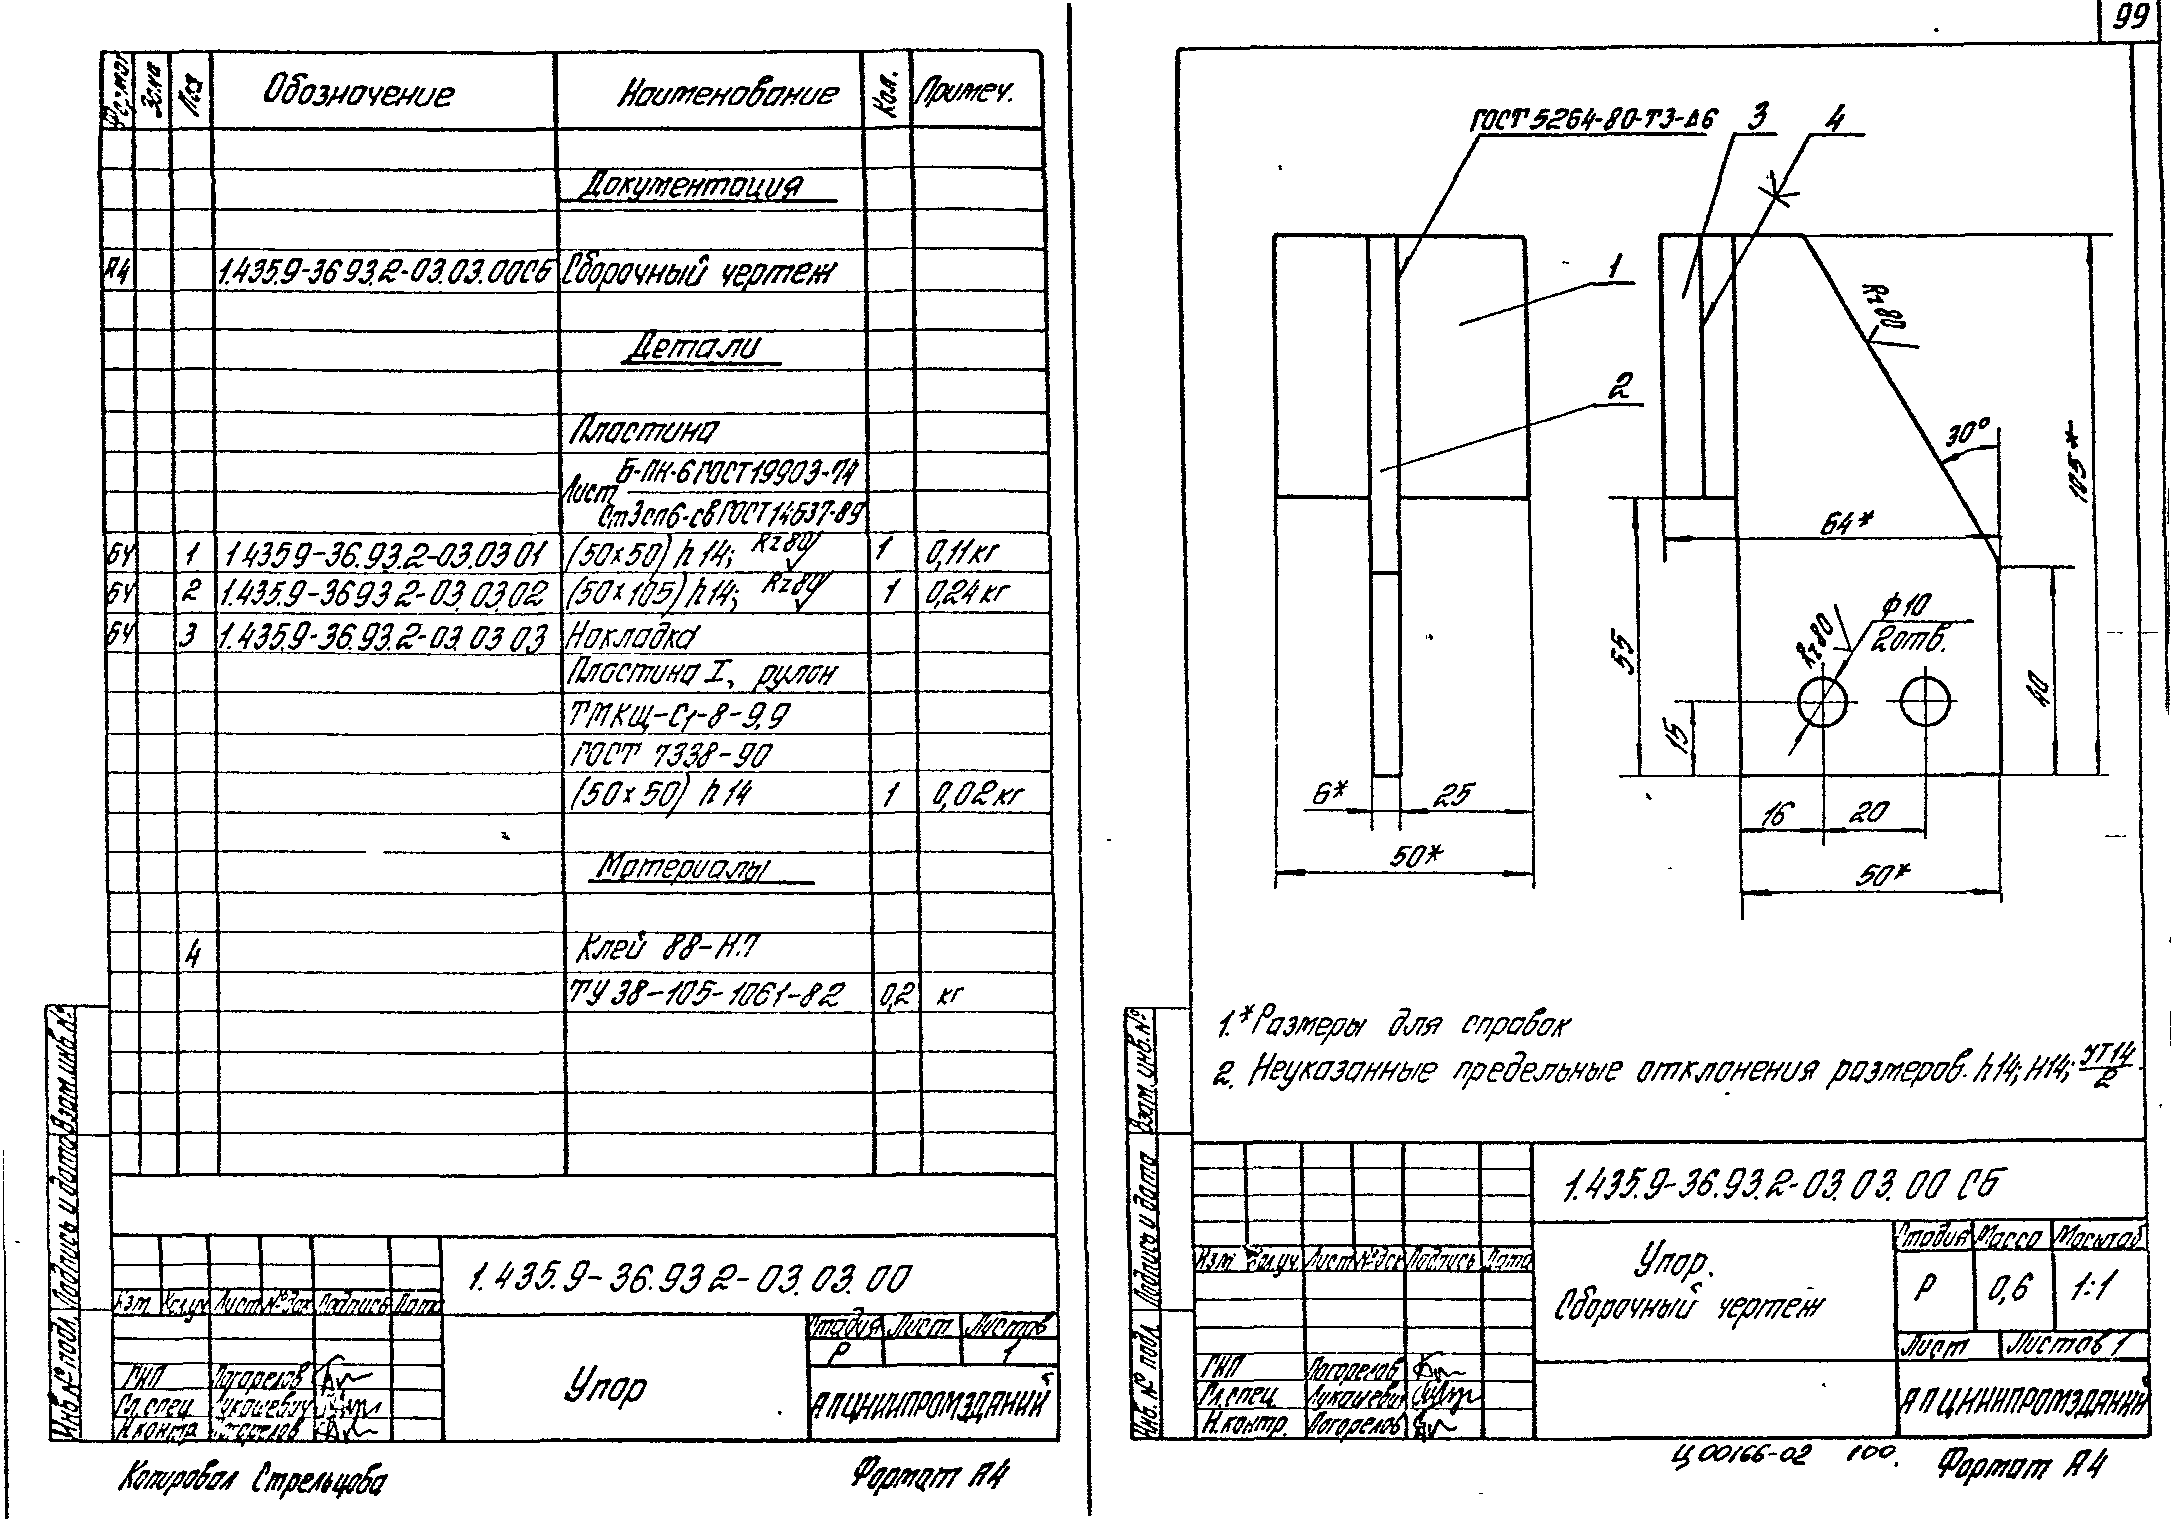 99
Формат Зона Поз Обозначение Наименование Кол. Примеч.
Документация
А4 1.435.9-36 93.2-03.03.00СБ Сборочный чертеж
Детали
Пластина
Лист Б-ПН-6 ГОСТ 19903-74
Ст3сп6-св ГОСТ 14637-89
БЧ 1 1.435.9-36.93.2-03.03 01 (50х50) h 14; Rz80 1 0,11 кг
БЧ 2 1.435.9-36 93 2-03.03.02 (50х105) h 14; Rz80 1 0,24 кг
БЧ 3 1.435.9-36.93.2-03.03 03 Накладка
Пластина I, рулон
ТМКЩ-С1-8-9,9
ГОСТ 7338-90
(50х50) h 14 1 0,02 кг
Материалы
4 Клей 88-Н.П
ТУ 38-105-1061-82 0,2 кг
Инв.№ подл. Подпись и дата Взам.инв.№
1.435.9-36.93 2-03.03.00
Изм Кол.уч Лист №док Подпись Дата
Упор
Стадия Лист Листов
Р 1
ГИП Погорелов
Гл.спец Лукашевич
Н.контр Погорелов
АПЦНИИПРОМЗДАНИЙ
Копировал Стрельцова
Формат А4
ГОСТ 5264-80-Т3-Δ6
3
4
1
2
Rz80
30°
105*
64*
55
15
Rz80
ф10
2отв.
40
6*
25
50*
16
20
50*
1.*Размеры для справок
2. Неуказанные предельные отклонения размеров. h14; H14; УТ14/2
Инв.№ подл. Подпись и дата Взам.инв.№
1.435.9-36.93.2-03.03.00 СБ
Изм Кол.уч. Лист №док Подпись Дата
Упор.
Сборочный чертеж
Стадия Масса Масштаб
Р 0,6 1:1
Лист Листов 1
ГИП Погорелов
Гл.спец. Лукашевич
Н.контр. Погорелов
АПЦНИИПРОМЗДАНИЙ
Ц00166-02 100.
Формат А4